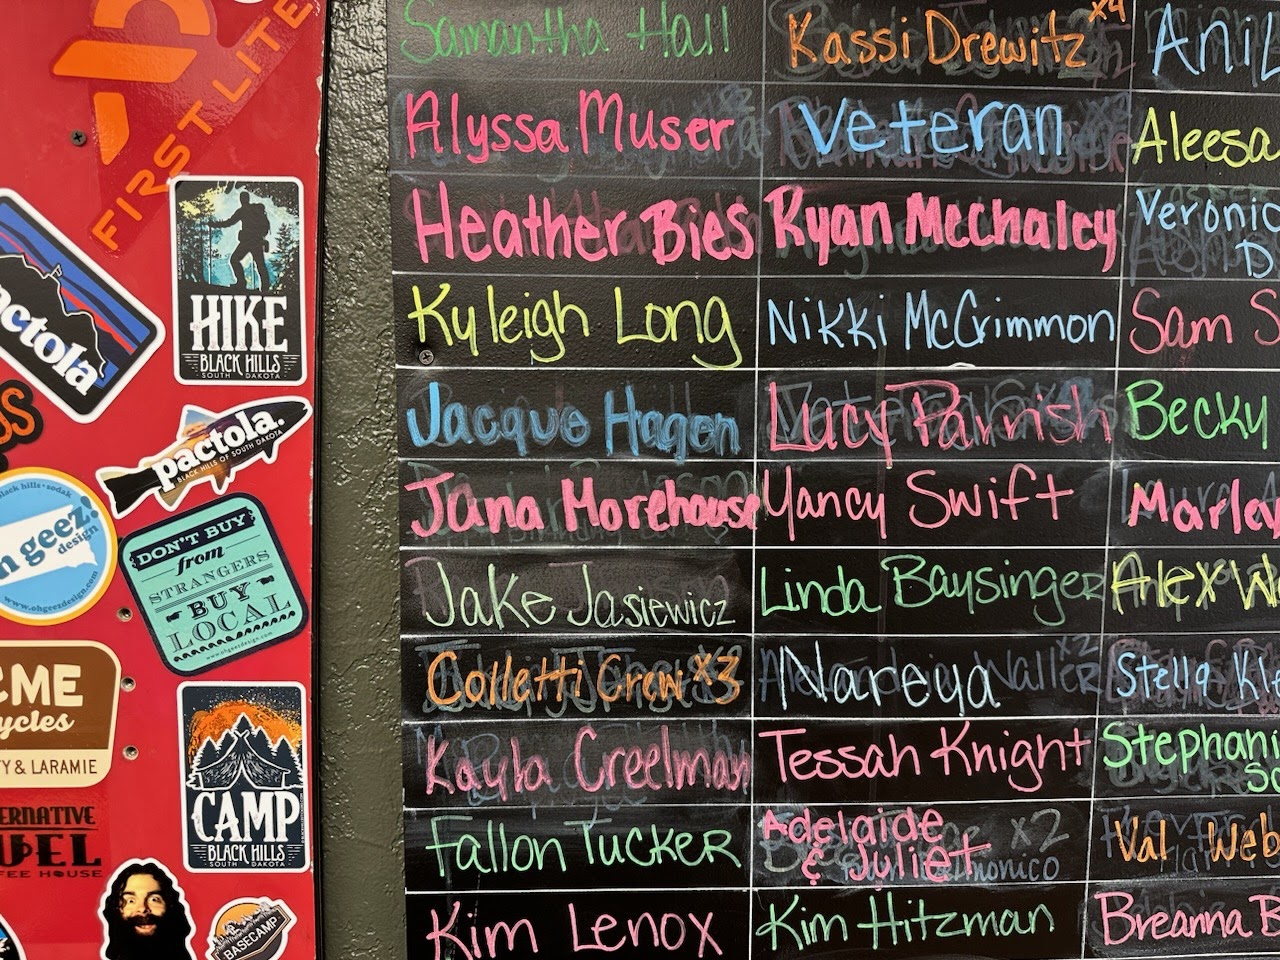 FIRST LITE
HIKE
BLACK HILLS
SOUTH DAKOTA
pactola.
BLACK HILLS OF SOUTH DAKOTA
black hills • sodak
geez.
design
www.ohgeezdesign.com
DON'T BUY
from
STRANGERS
BUY
LOCAL
www.ohgeezdesign.com
& LARAMIE
CAMP
BLACK HILLS
SOUTH DAKOTA
BASECAMP
Samantha Hall
Kassi Drewitz x4
Alyssa Muser
Veteran
Aleesa
Heather Bies
Ryan McChaley
Kyleigh Long
Nikki McCrimmon
Sam S
Jacque Hagen
Lucy Parrish
Becky
Jana Morehouse
Yancy Swift
Jake Jasiewicz
Linda Baysinger
Alex W
Colletti Crew x3
Nareya
Stella Kle
Kayla Creelman
Tessah Knight
Stephani
Fallon Tucker
Adelaide
& Juliet
Val Web
Kim Lenox
Kim Hitzman
Breanna B